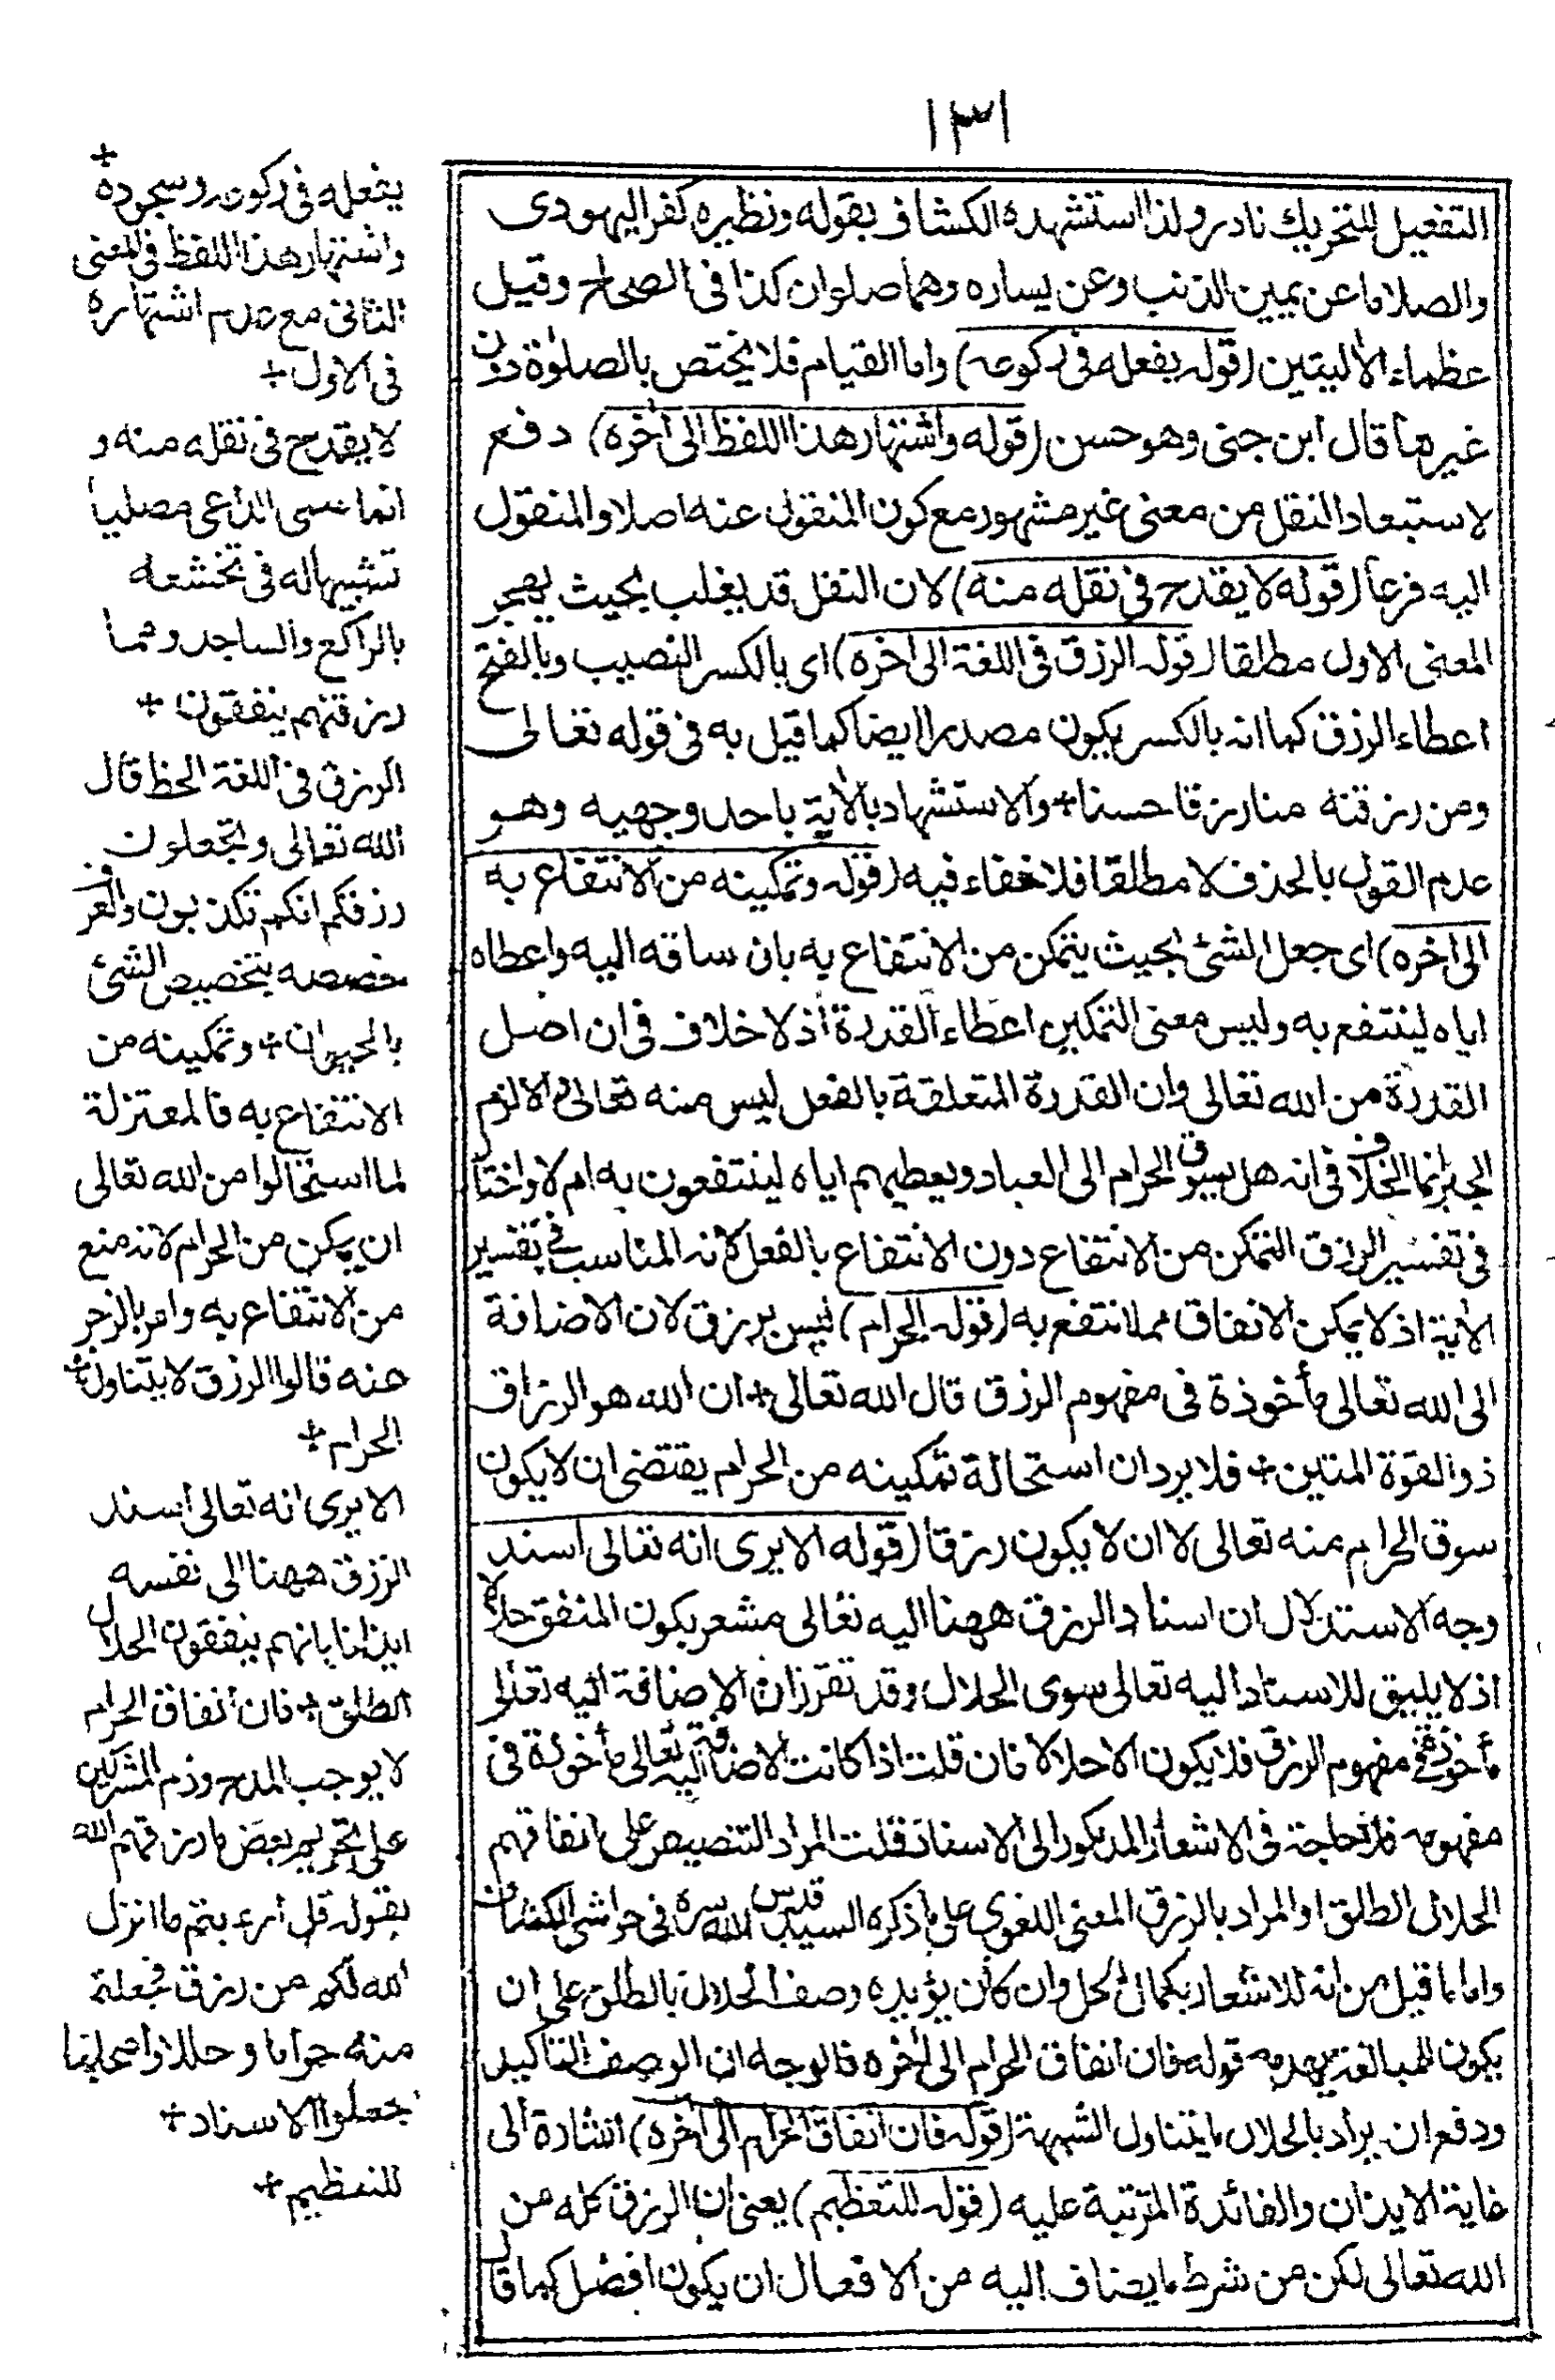 ١٣١
التفعيل للتحريك نادر ولذا استشهده الكشاف بقوله ونظيره كفر اليهودى
والصلا ما عن يمين الذنب وعن يساره وهما صلوان كذا فى الصحاح وقيل
عظماء الأليتين (قوله يفعله فى ركوعه) واما القيام فلا يختص بالصلوٰة دون
غيرها قال ابن جنى وهو حسن (قوله واشتهار هذا اللفظ الى أخره) دفع
لاستبعاد النقل من معنى غير مشهور مع كون المنقول عنه اصلا والمنقول
اليه فرعا (قوله لا يقدح فى نقله منه) لان النقل قد يغلب بحيث يهجر
المعنى الاول مطلقا (قوله الرزق فى اللغة الى اخره) اى بالكسر النصيب وبالفتح
اعطاء الرزق كما انه بالكسر يكون مصدرا ايضا كما قيل به فى قوله تعالى
ومن رزقنه منا رزقا حسنا+ والاستشهاد بالأية باحد وجهيه وهو
عدم القول بالحذف لا مطلقا فلا خفاء فيه (قوله وتمكينه من الانتفاع به
الى اخره) اى جعل الشئ بحيث يتمكن من الانتفاع به بان ساقه اليه واعطاه
اياه لينتفع به وليس معنى التمكين اعطاء القدرة اذ لا خلاف فى ان اصل
القدرة من الله تعالى وان القدرة المتعلقة بالفعل ليس منه تعالى والا لزم
الجبر انما الخلاف فى انه هل يسوق الحرام الى العباد ويعطيهم اياه لينتفعون به ام لا واختار
فى تفسير الرزق التمكن من الانتفاع دون الانتفاع بالفعل لانه المناسب فى تفسير
الأية اذ لا يمكن الانفاق مما انتفع به (قوله الحرام) ليس برزق لان الاضافة
الى الله تعالى مأخوذة فى مفهوم الرزق قال الله تعالى+ ان الله هو الرزاق
ذو القوة المتين+ فلا يرد ان استحالة تمكينه من الحرام يقتضى ان لا يكون
سوق الحرام منه تعالى لا ان لا يكون رزقا (قوله الا يرى انه تعالى اسند
وجه الاستدلال ان اسناد الرزق ههنا اليه تعالى مشعر بكون المنفق حلالا
اذ لا يليق للاسناد اليه تعالى سوى الحلال وقد تقرر ان الاضافة اليه تعالى
مأخوذة فى مفهوم الرزق فلا يكون الا حلالا فان قلت اذا كانت الاضافة اليه تعالى مأخوذة فى
مفهومه فلا حاجة فى الاشعار المذكور الى الاسناد قلت المراد التنصيص على انفاقهم
الحلال الطلق او المراد بالرزق المعنى اللغوى على ما ذكره السيد قدس الله سره فى حواشى الكشاف
واما ما قيل من انه للاشعار بكمال الحل وان كان يؤيده وصف الحلال بالطلق على ان
يكون للمبالغة يهدمه قوله فان انفاق الحرام الى أخره فالوجه ان الوصف للتأكيد
ودفع ان يراد بالحلال ما يتناول الشبهة (قوله فان انفاق الحرام الى أخره) اشارة الى
غاية الايذان والفائدة المترتبة عليه (قوله للتعظيم) يعنى ان الرزق كله من
الله تعالى لكن من شرط ما يضاف اليه من الافعال ان يكون افضل كما قال
يفعله فى ركوعه وسجوده+
واشتهار هذا اللفظ فى المعنى
الثانى مع عدم اشتهاره
فى الاول+
لا يقدح فى نقله منه و
انما سمى الداعى مصليا
تشبيها له فى تخشعه
بالراكع والساجد ومما
رزقنهم ينفقون+
الرزق فى اللغة الحظ قال
الله تعالى وتجعلون
رزقكم انكم تكذبون والعرف
خصصه بتخصيص الشئ
بالحيوان+ وتمكينه من
الانتفاع به فالمعتزلة
لما استحالوا من الله تعالى
ان يمكن من الحرام لانه منع
من الانتفاع به وامر بالزجر
عنه قالوا الرزق لا يتناول+
الحرام+
الا يرى انه تعالى اسند
الرزق ههنا الى نفسه
ايذانا بانهم ينفقون الحلال
الطلق+ فان انفاق الحرام
لا يوجب المدح وذم المشركين
على تحريم بعض ما رزقهم الله
بقوله قل أرءيتم ما انزل
الله لكم من رزق فجعلتم
منه حراما وحللا واصحابنا
جعلوا الاسناد+
للتعظيم+